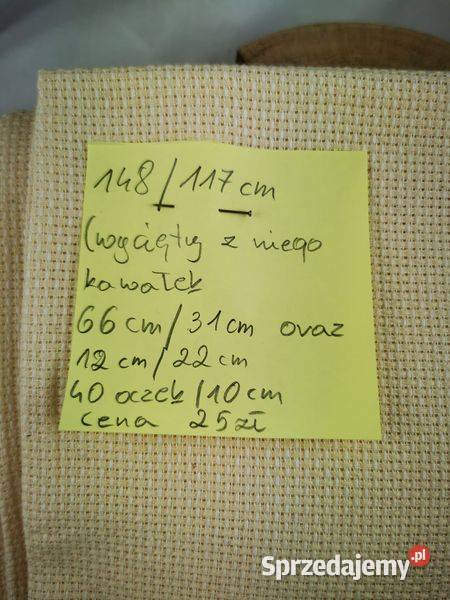 148/117 cm
(wycięty z niego
kawałek
66 cm/31 cm oraz
12 cm/22 cm
40 oczek/10 cm
cena 25 zł
Sprzedajemy.pl